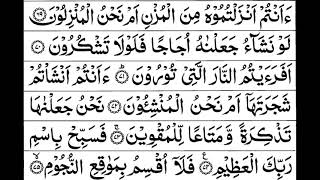 ءَاَنْتُمْ اَنْزَلْتُمُوْهُ مِنَ الْمُزْنِ اَمْ نَحْنُ الْمُنْزِلُوْنَ ﴿۶۹﴾
لَوْ نَشَآءُ جَعَلْنٰهُ اُجَاجًا فَلَوْلَا تَشْكُرُوْنَ ﴿۷۰﴾
اَفَرَءَيْتُمُ النَّارَ الَّتِيْ تُوْرُوْنَ ﴿۷۱﴾ ءَاَنْتُمْ اَنْشَاْتُمْ
شَجَرَتَهَآ اَمْ نَحْنُ الْمُنْشِـُٔوْنَ ﴿۷۲﴾ نَحْنُ جَعَلْنٰهَا
تَذْكِرَةً وَّمَتَاعًا لِّلْمُقْوِيْنَ ﴿۷۳﴾ فَسَبِّحْ بِاسْمِ
رَبِّكَ الْعَظِيْمِ ﴿۷۴﴾ فَلَآ اُقْسِمُ بِمَوٰقِعِ النُّجُوْمِ ﴿۷۵﴾